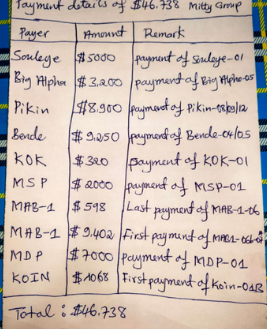 Payment details of $46.738 Mitty Group
Payer Amount Remark
Souleye $5000 payment of Souleye-01
Big Alpha $3,200 payment of Big Alpha-05
Pikin $8,900 payment of Pikin-08/09/12
Bende $9,250 payment of Bende-04/05
KOK $320 payment of KOK-01
MSP $2000 payment of MSP-01
MAB-1 $598 Last payment of MAB-1-06
MAB-1 $9,402 First payment of MAB1-
MDP $7000 payment of MDP-01
KOIN $1068 First payment of Koin-
Total : $46.738